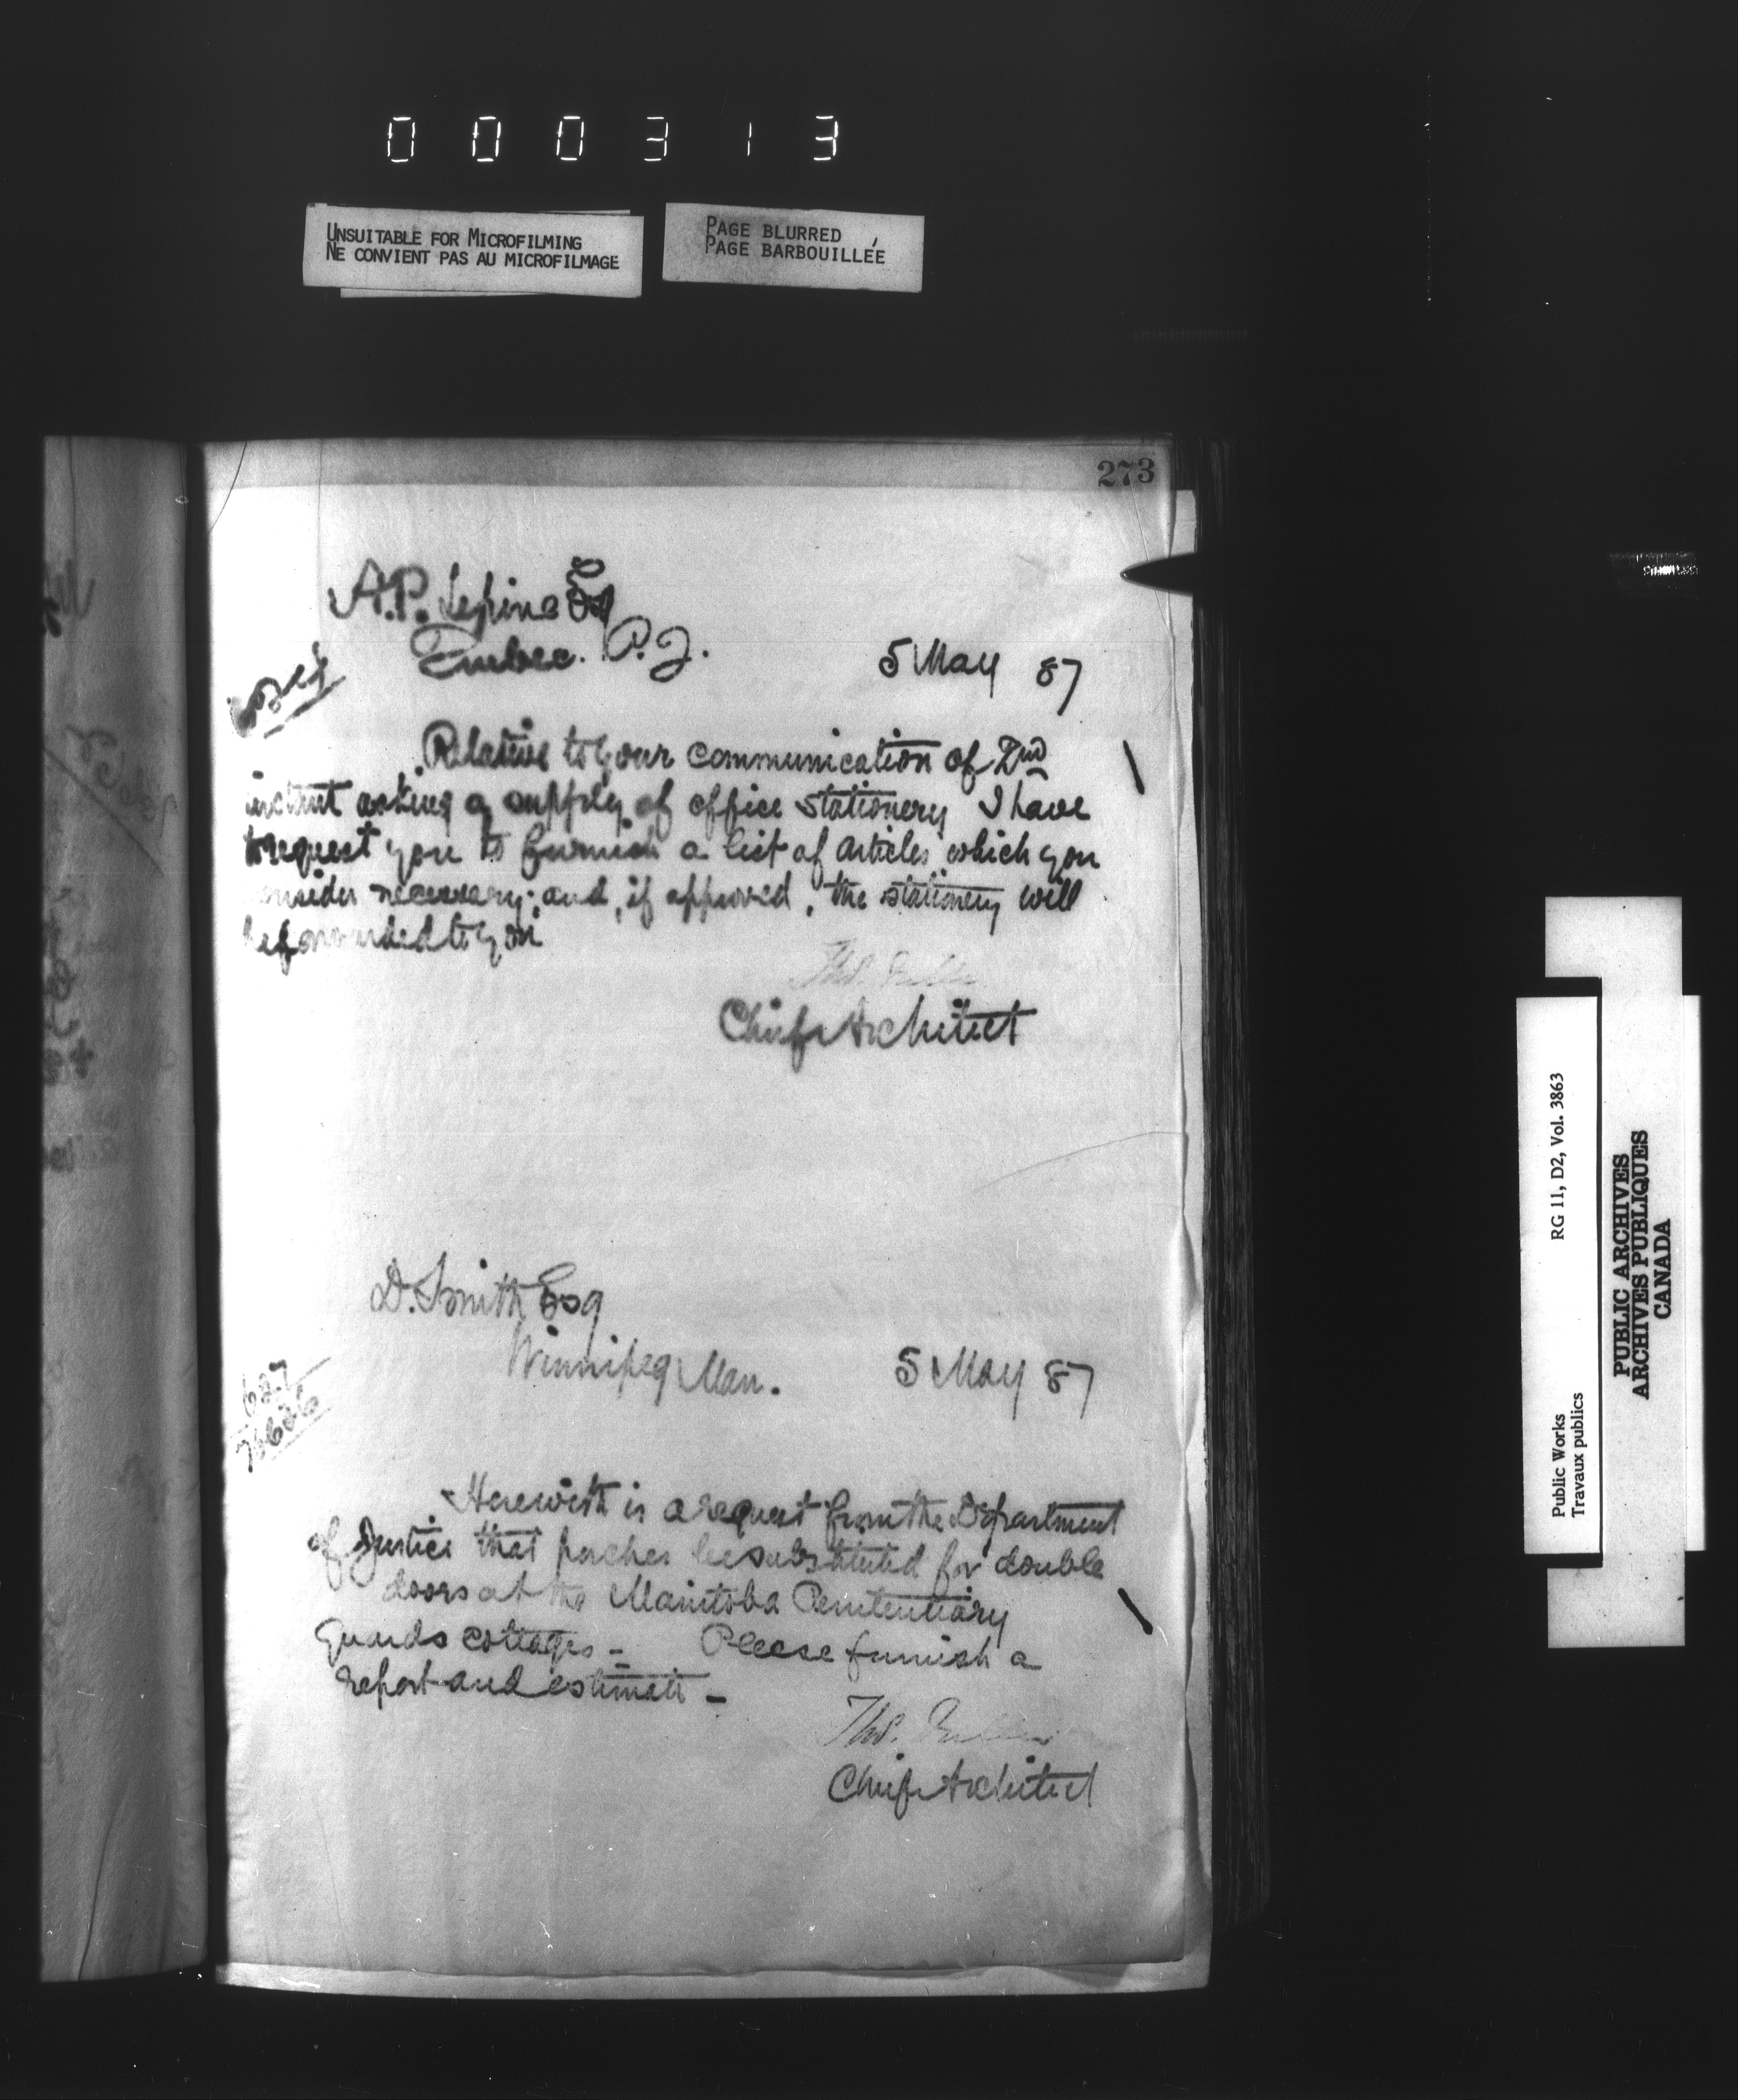 000313
UNSUITABLE FOR MICROFILMING
NE CONVIENT PAS AU MICROFILMAGE
PAGE BLURRED
PAGE BARBOUILLÉE
273
A.P. Lepine Esq
Quebec. P.Q.
5 May 87
Relative to your communication of 2nd
instant asking a supply of office stationery I have
to request you to furnish a list of articles which you
consider necessary; and, if approved, the stationery will
be forwarded to you
Thos. Fuller
Chief Architect
D. Smith Esq
Winnipeg Man.
5 May 87
627
76626
Herewith is a request from the Department
of Justice that porches be substituted for double
doors at the Manitoba Penitentiary
Guards cottages - Please furnish a
report and estimate -
Thos. Fuller
Chief Architect
Public Works
Travaux publics
RG 11, D2, Vol. 3863
PUBLIC ARCHIVES
ARCHIVES PUBLIQUES
CANADA